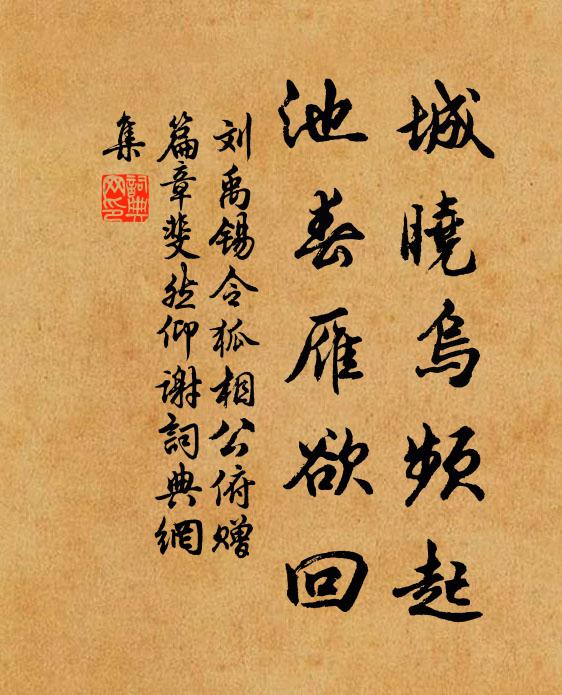 城曉烏頻起
池春雁欲回
刘禹锡令狐相公俯赠
篇章斐然仰谢詞典網
集
詞典网印